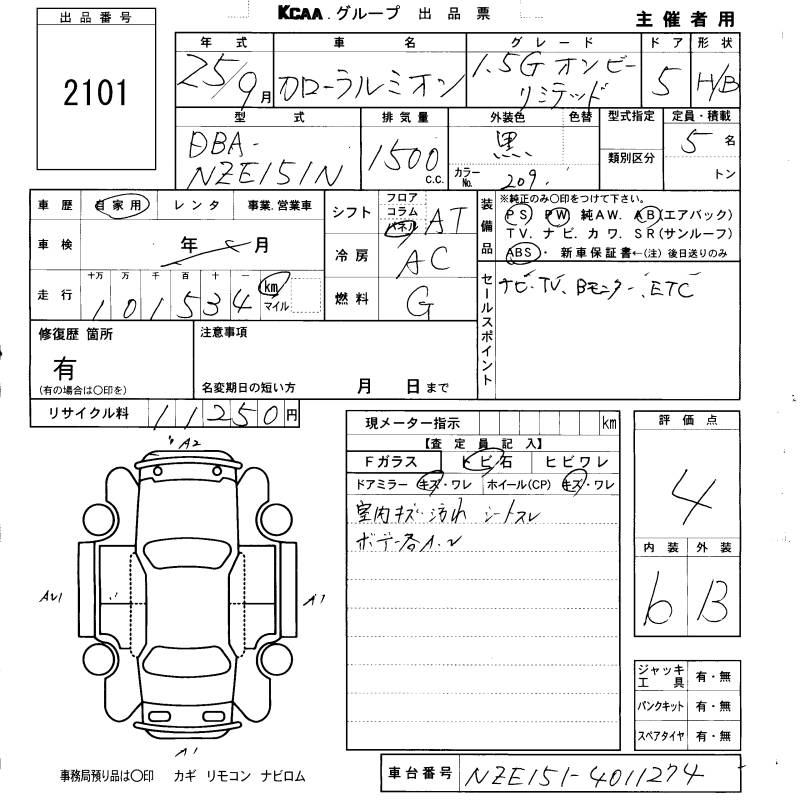 KCAA. グループ 出品票
主催者用
出品番号
2101
年式 車名 グレード ドア 形状
25/9月 カローラルミオン 1.5G オンビーリミテッド 5 H/B
型式 排気量 外装色 色替 型式指定 定員・積載
DBA-NZE151N 1500 c.c. 黒 カラーNo. 209 類別区分 5名 トン
車歴 自家用 レンタ 事業.営業車
車検 年 月
走行 十万 万 千 百 十 一
101534 km マイル
シフト フロア コラム パネル AT
冷房 AC
燃料 G
装備品
※純正のみ〇印をつけて下さい。
PS PW 純AW. AB(エアバック)
TV. ナビ. カワ. SR(サンルーフ)
ABS・ 新車保証書←(注)後日送りのみ
セールスポイント
ナビ・TV、Bモニター、ETC
修復歴 箇所
有
(有の場合は〇印を)
注意事項
名変期日の短い方 月 日まで
リサイクル料 11250円
現メーター指示 km
【査定員記入】
Fガラス トビ石 ヒビワレ
ドアミラー キズ・ワレ ホイール(CP) キズ・ワレ
室内キズ・汚れ シートスレ
ボデー各A.U
評価点
4
内装 外装
b B
A2
AU1
A1
A1
ジャッキ工具 有・無
パンクキット 有・無
スペアタイヤ 有・無
事務局預り品は〇印 カギ リモコン ナビロム
車台番号 NZE151-4011274